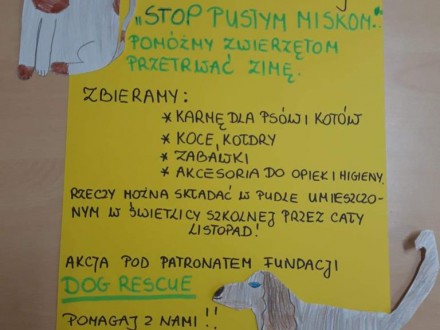 „STOP PUSTYM MISKOM."
POMÓŻMY ZWIERZĘTOM
PRZETRWAĆ ZIMĘ.
ZBIERAMY:
* KARMĘ DLA PSÓW I KOTÓW
* KOCE, KOŁDRY
* ZABAWKI
* AKCESORIA DO OPIEKI I HIGIENY.
RZECZY MOŻNA SKŁADAĆ W PUDLE UMIESZCZO-
NYM W ŚWIETLICY SZKOLNEJ PRZEZ CAŁY
LISTOPAD!
AKCJA POD PATRONATEM FUNDACJI
DOG RESCUE
POMAGAJ Z NAMI!!